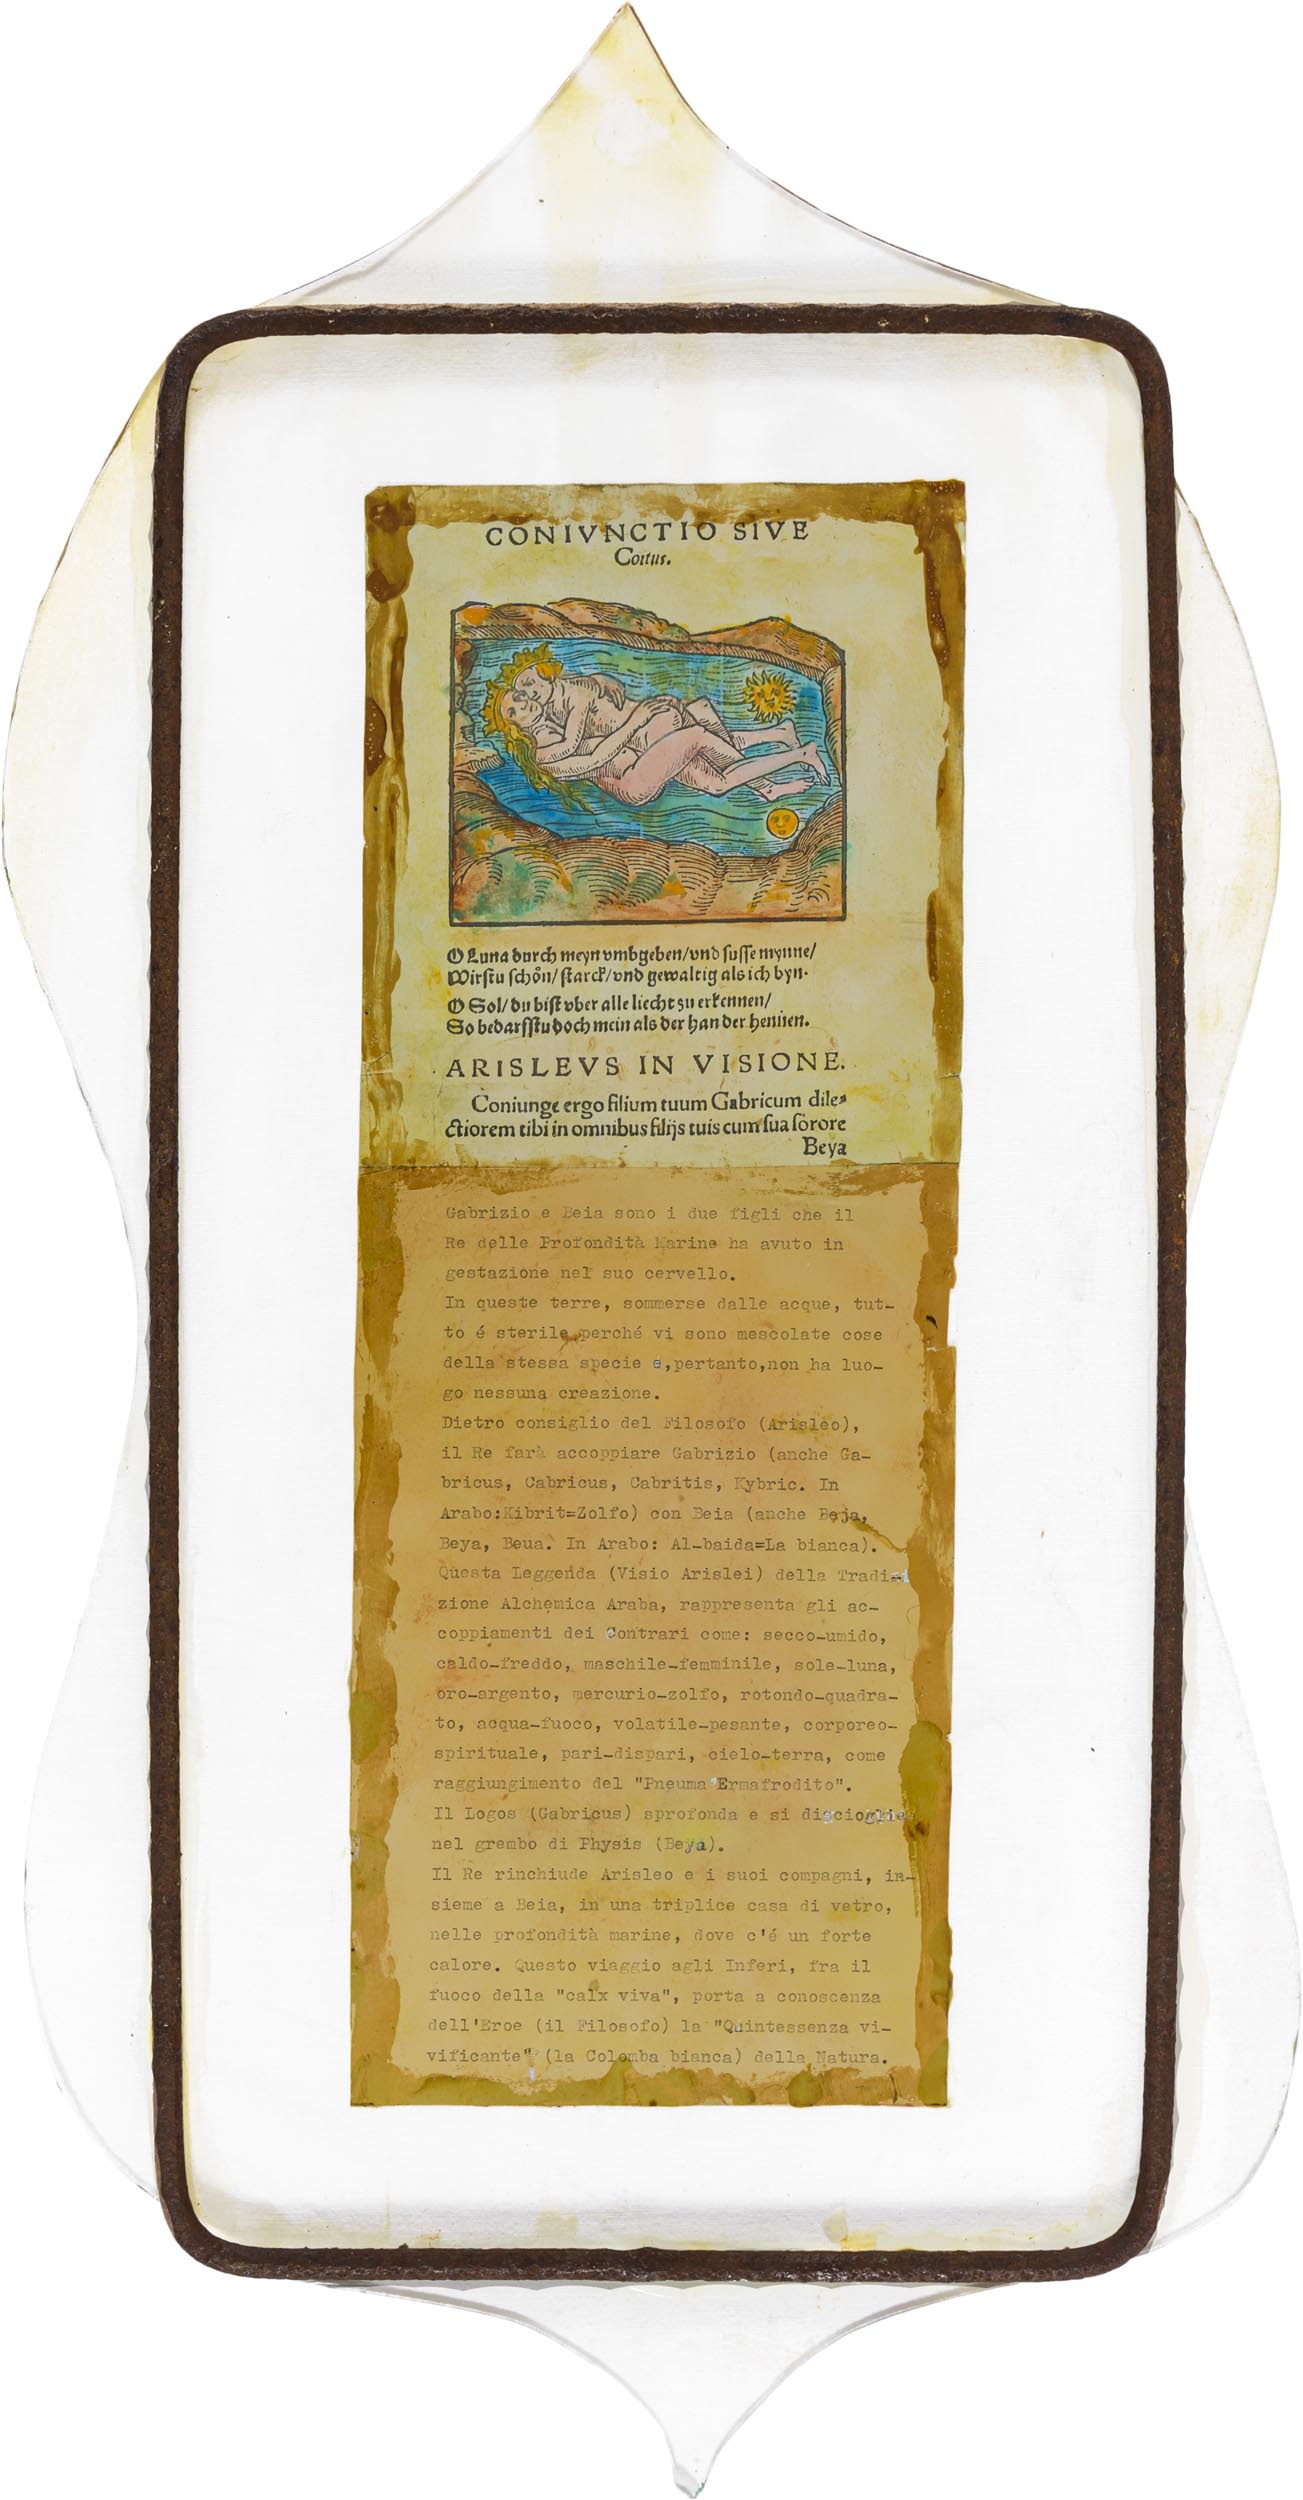 CONIVNCTIO SIVE
Coitus.
O Luna durch meyn vmbgeben/vnd susse mynne/
Wirstu schön/ starck/vnd gewaltig als ich byn.
O Sol/ du bist vber alle liecht zu erkennen/
So bedarfstu doch mein als der han der hennen.
ARISLEVS IN VISIONE.
Coniunge ergo filium tuum Gabricum dile-
ctiorem tibi in omnibus filijs tuis cum sua sorore
Beya
Gabrizio e Beia sono i due figli che il
Re delle Profondità Marine ha avuto in
gestazione nel suo cervello.
In queste terre, sommerse dalle acque, tut-
to é sterile perché vi sono mescolate cose
della stessa specie e,pertanto,non ha luo-
go nessuna creazione.
Dietro consiglio del Filosofo (Arisleo),
il Re farà accoppiare Gabrizio (anche Ga-
bricus, Cabricus, Cabritis, Kybric. In
Arabo:Kibrit=Zolfo) con Beia (anche Beja,
Beya, Beua. In Arabo: Al-baida=La bianca).
Questa Leggenda (Visio Arislei) della Tradi-
zione Alchemica Araba, rappresenta gli ac-
coppiamenti dei Contrari come: secco-umido,
caldo-freddo, maschile-femminile, sole-luna,
oro-argento, mercurio-zolfo, rotondo-quadra-
to, acqua-fuoco, volatile-pesante, corporeo-
spirituale, pari-dispari, cielo-terra, come
raggiungimento del "Pneuma Ermafrodito".
Il Logos (Gabricus) sprofonda e si discioglie
nel grembo di Physis (Beya).
Il Re rinchiude Arisleo e i suoi compagni, in-
sieme a Beia, in una triplice casa di vetro,
nelle profondità marine, dove c'é un forte
calore. Questo viaggio agli Inferi, fra il
fuoco della "calx viva", porta a conoscenza
dell'Eroe (il Filosofo) la "Quintessenza vi-
vificante" (la Colomba bianca) della Natura.